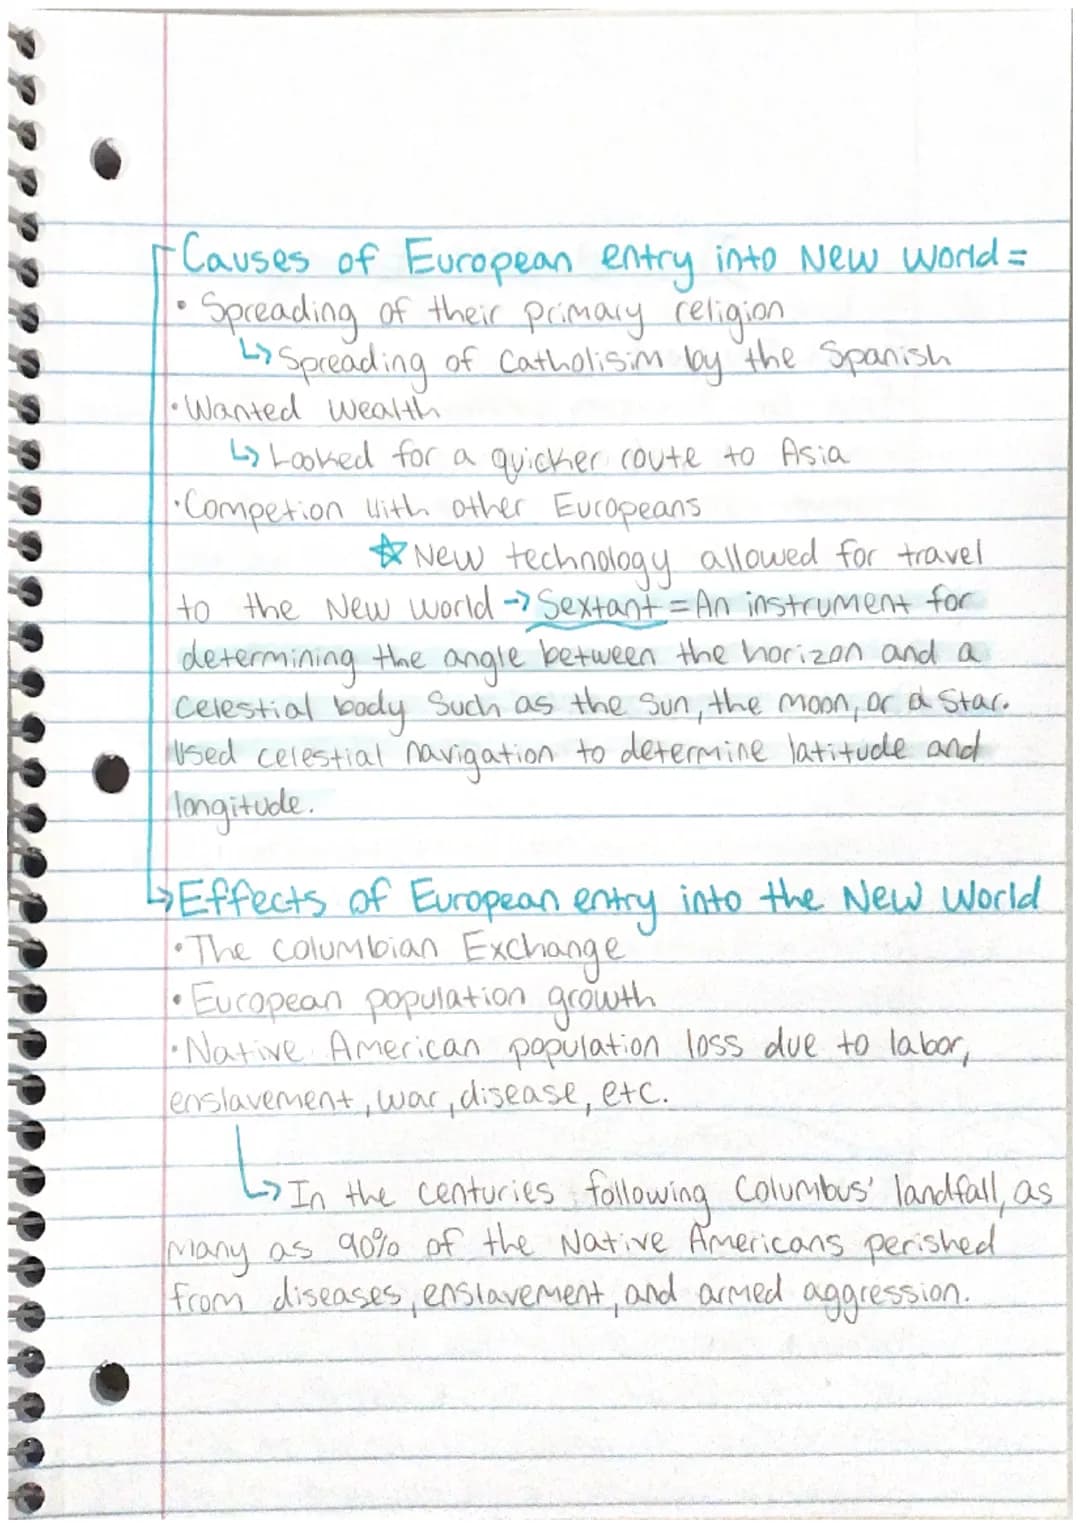 Causes of European entry into New World =
• Spreading of their primary religion
↳ Spreading of Catholisim by the Spanish
• Wanted wealth
↳ Looked for a quicker route to Asia
• Competion with other Europeans
☆ New technology allowed for travel
to the New World → Sextant = An instrument for
determining the angle between the horizon and a
celestial body such as the Sun, the moon, or a star.
Used celestial navigation to determine latitude and
longitude.
↳ Effects of European entry into the New World
• The Columbian Exchange
• European population growth
• Native American population loss due to labor,
enslavement, war, disease, etc.
↳ In the centuries following Columbus' landfall, as
many as 90% of the Native Americans perished
from diseases, enslavement, and armed aggression.